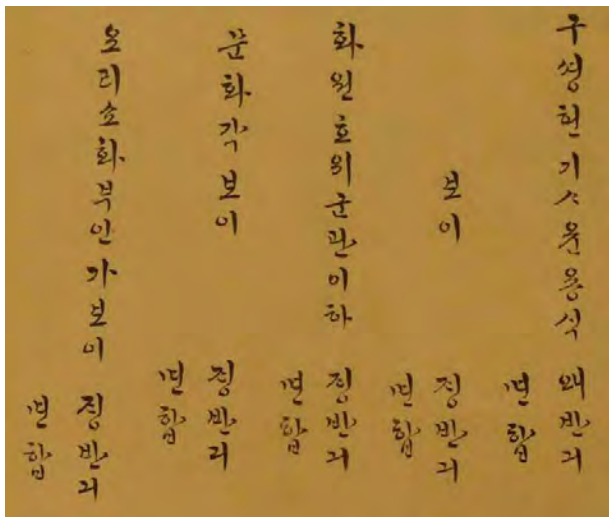 구셩헌기ᄉ윤용식 왜반긔
면합
보이 졍반긔
면합
화원호위군관이하 졍반긔
면합
문화각보이 졍반긔
면합
오리쇼화부인가보이 졍반긔
면합